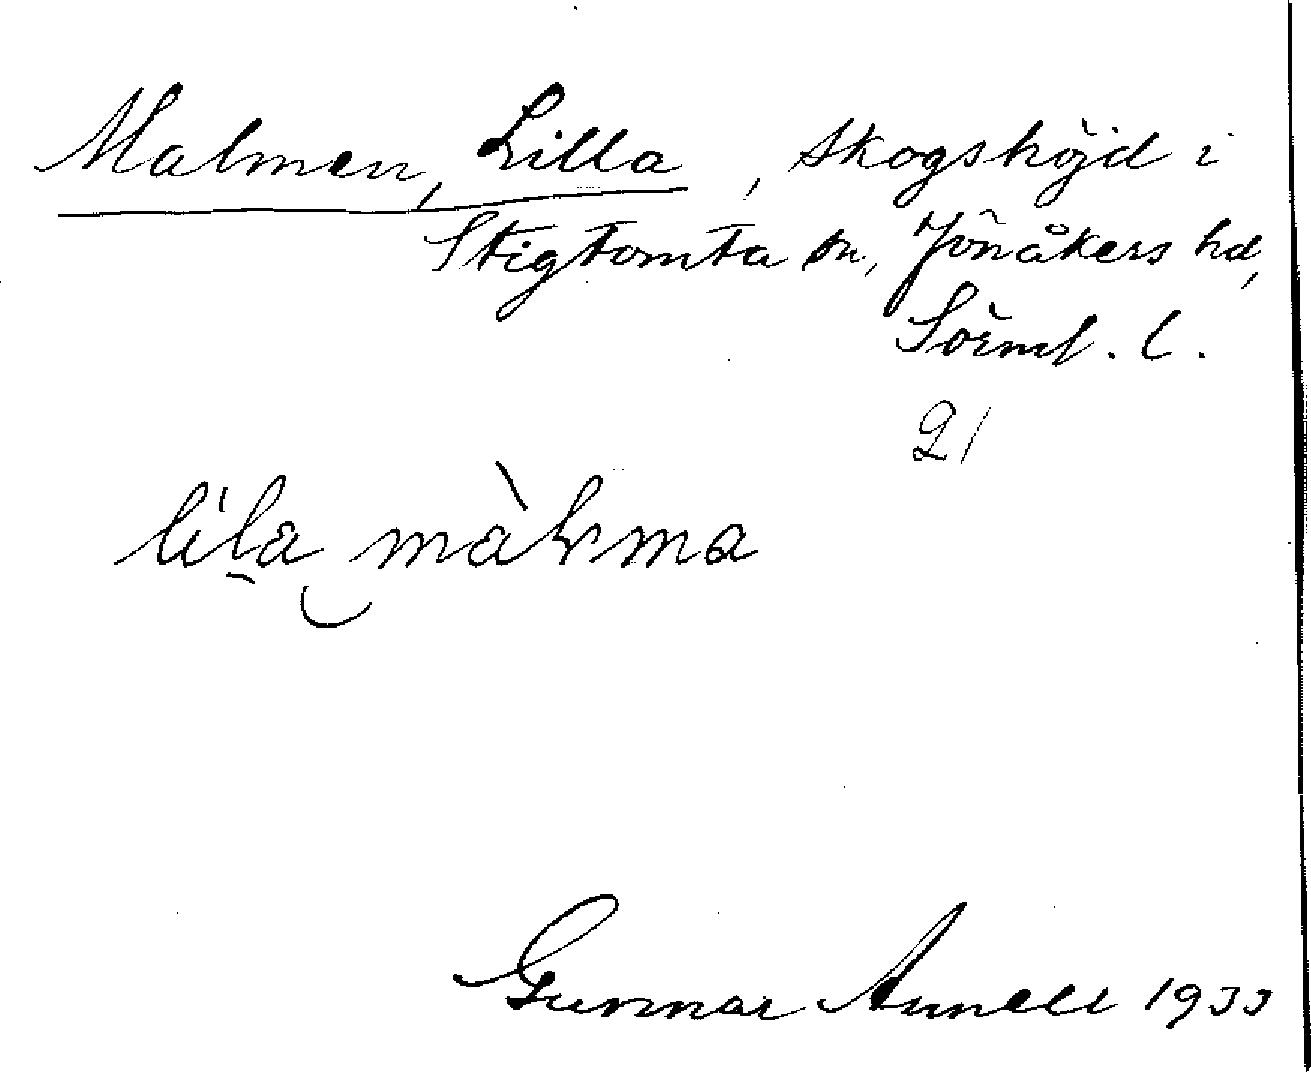 Malmen, Lilla, skogshöjd i
Stigtomta sn, Jönåkers hd,
Sörml. l.
21
lila màlma
Gunnar Annell 1933